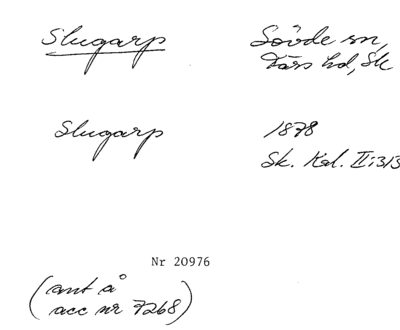 Slugarp
Sövde sn,
Färs hd, Sk
Slugarp
1878
Sk. Kal. II:313
Nr 20976
(ant å
acc nr 7268)